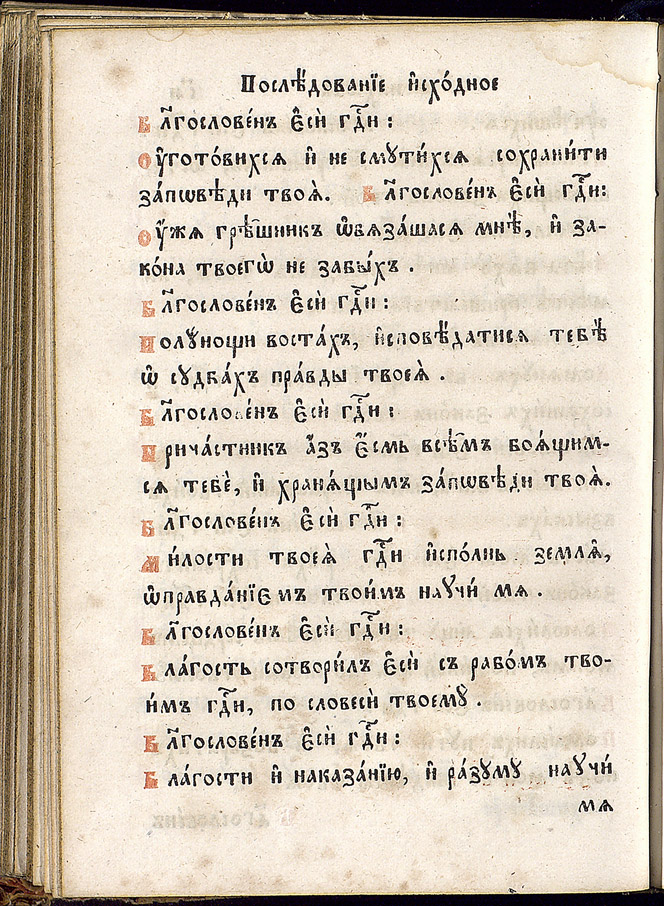 Послѣ́дованїе и҆схо́дное
Бл҃гослове́нъ є҆сѝ гдⷭ҇и:
Оу҆гото́вихся и҆ не смути́хся сохрани́ти
за́пѡвѣди твоя̀. Бл҃гослове́нъ є҆сѝ гдⷭ҇и:
Оу҆́жя грѣ́шникъ ѡ҆бяза́шася мнѣ̀, и҆ за-
ко́на твоегѡ̀ не забы́хъ.
Бл҃гослове́нъ є҆сѝ гдⷭ҇и:
Полу́нощи воста́хъ, и҆сповѣ́датися тебѣ̀
ѡ҆ судба́хъ пра́вды твоея̀.
Бл҃гослове́нъ є҆сѝ гдⷭ҇и:
Прича́стникъ а҆́зъ є҆́смь всѣ́мъ боя́щим-
ся тебѐ, и҆ храня́щымъ за́пѡвѣди твоя̀.
Бл҃гослове́нъ є҆сѝ гдⷭ҇и:
Ми́лости твоея̀ гдⷭ҇и и҆спо́лнь земля̀,
ѡ҆правда́нїємъ твои́мъ научи́ мя.
Бл҃гослове́нъ є҆сѝ гдⷭ҇и:
Бла́гость сотвори́лъ є҆сѝ съ рабо́мъ тво-
и́мъ гдⷭ҇и, по словесѝ твоемꙋ̀.
Бл҃гослове́нъ є҆сѝ гдⷭ҇и:
Бла́гости и҆ наказа́нїю, и҆ ра́зуму научи́
мя